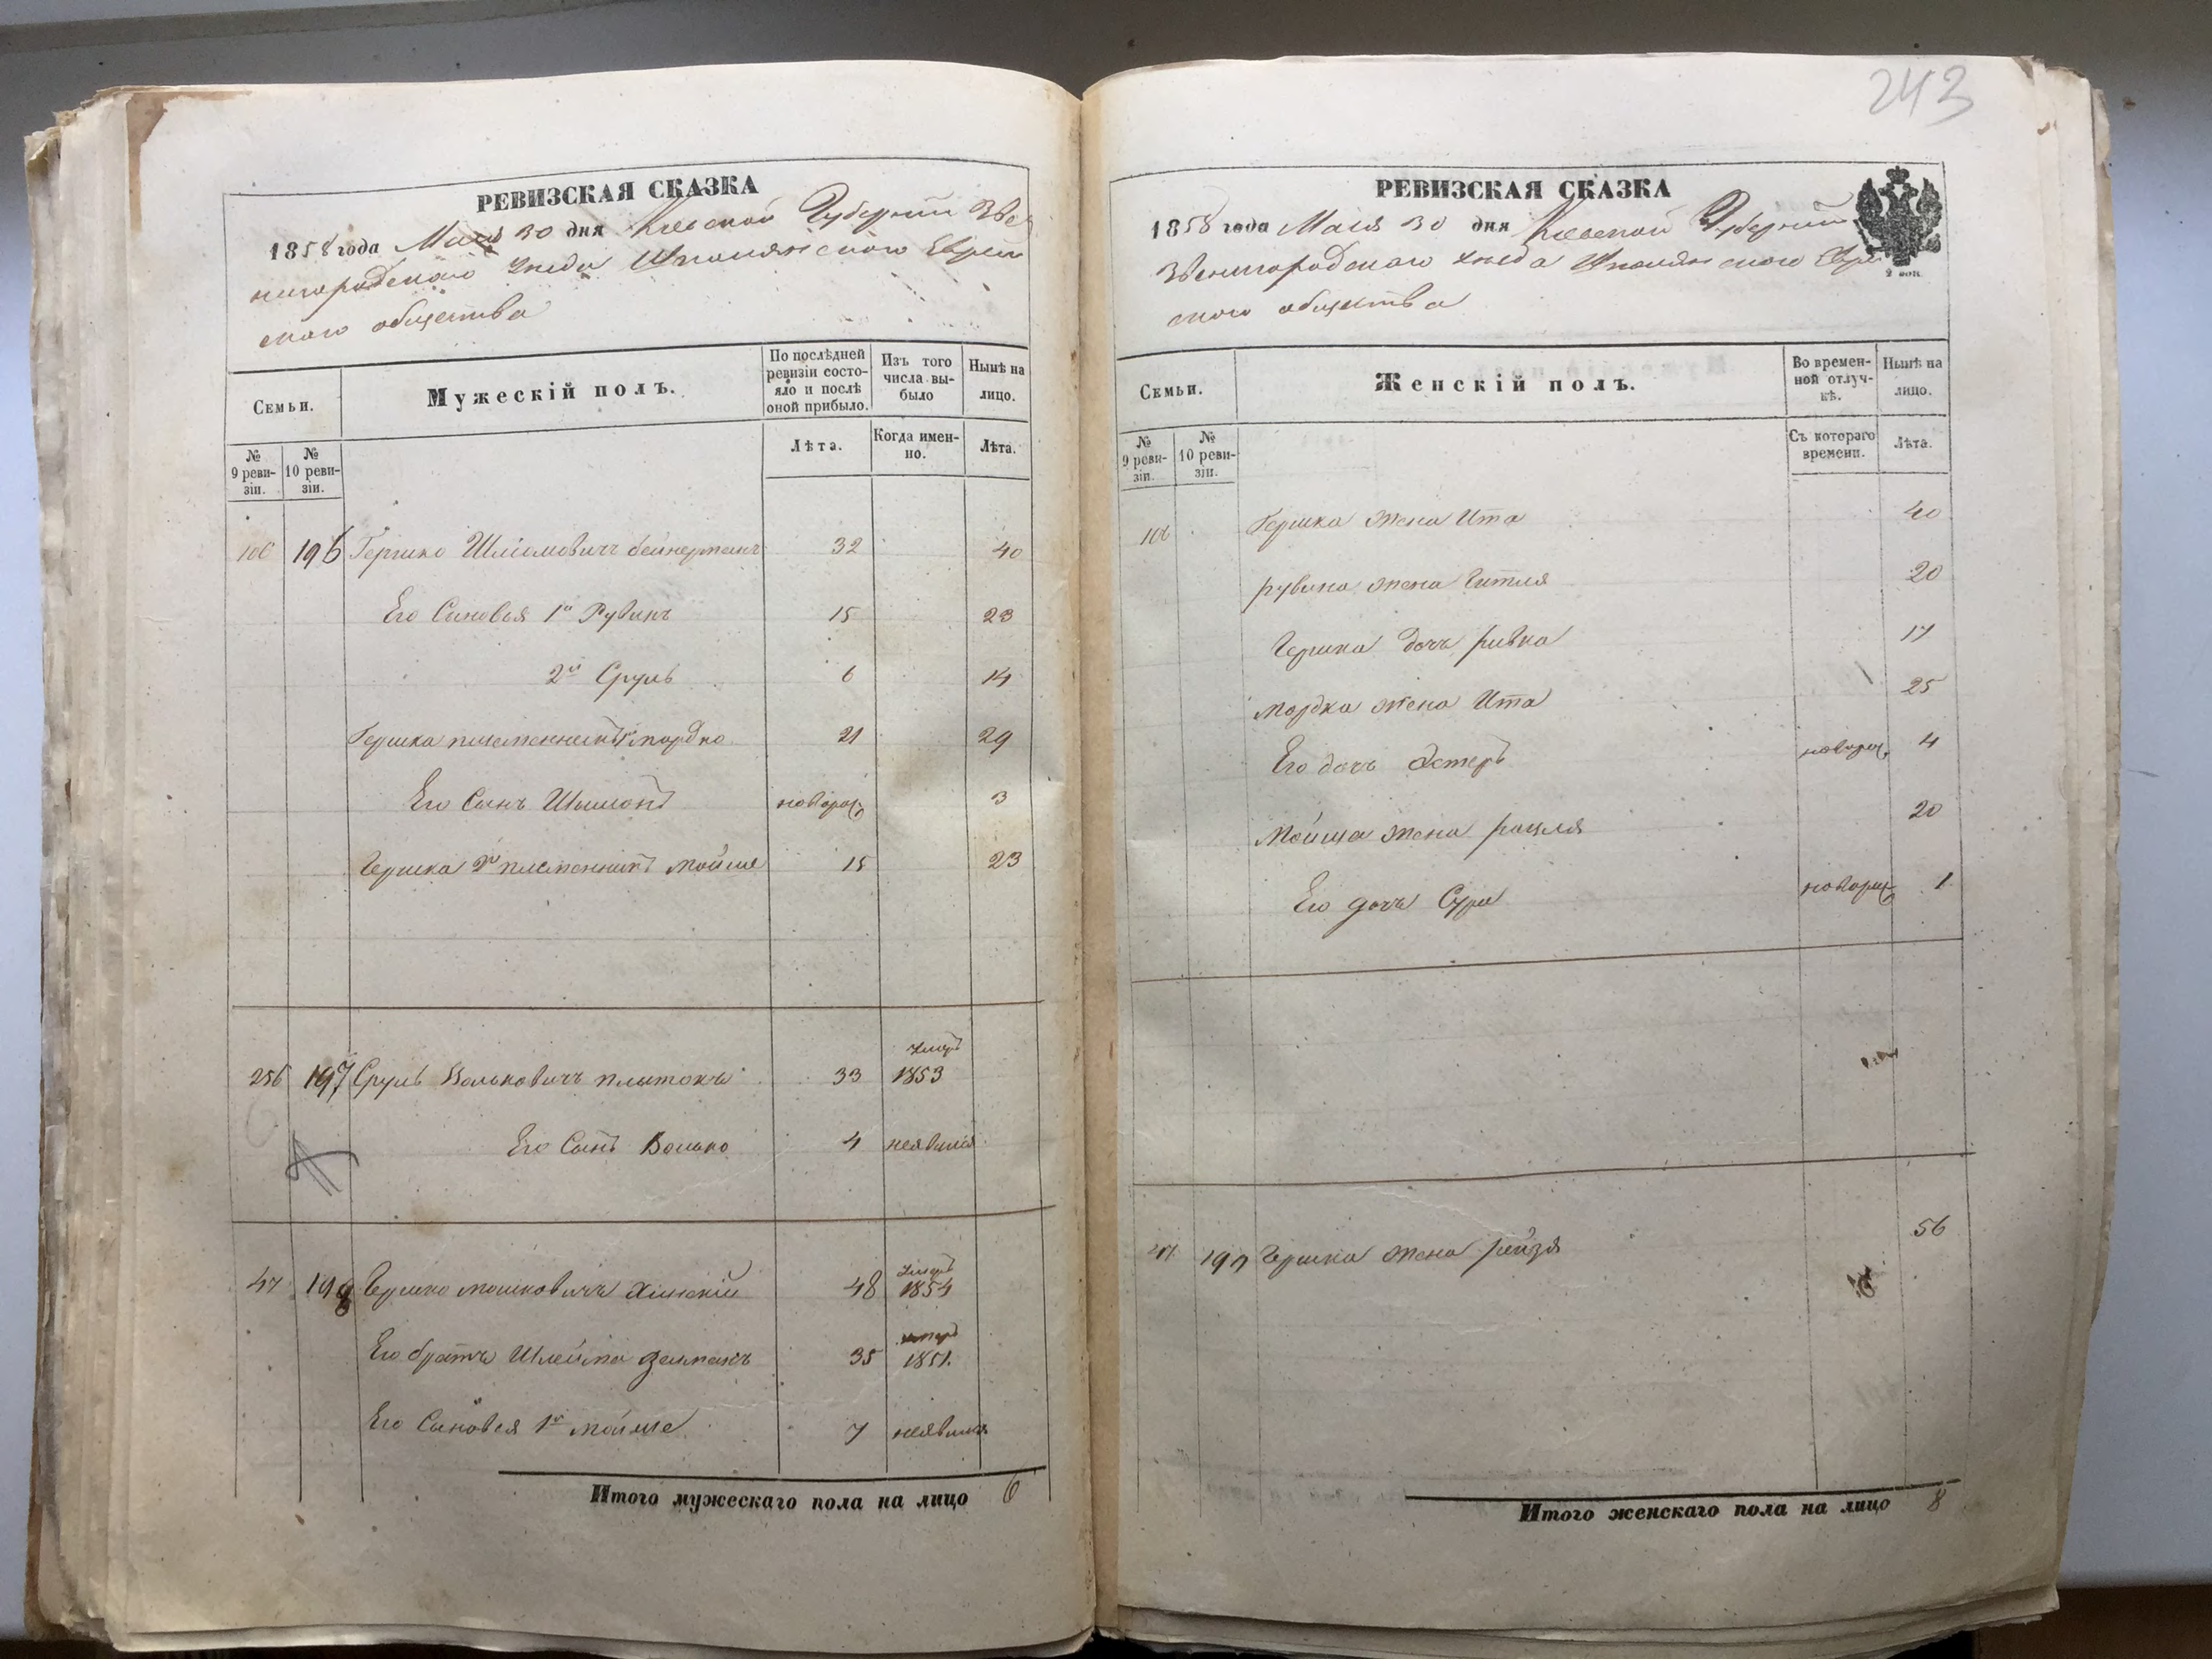 243
РЕВИЗСКАЯ СКАЗКА
1858 года Мая 30 дня Киевской Губернии Звe
нигородскаго уезда Шполянского Еврей
ского общества
Семьи.
Мужескій полъ.
По послѣдней ревизіи состояло и послѣ оной прибыло.
Изъ того числа выбыло
Нынѣ на лицо.
№ 9 ревизіи.
№ 10 ревизіи.
Лѣта.
Когда именно.
Лѣта.
106 196 Гершко Шліомовичъ 32 40
Его Сыновья 1й Рувинъ 15 23
2й Сруль 6 14
Гершка племенникъ 1й мордко 21 29
Его Сынъ Шимонъ новорож 3
Гершка 2й племенникъ мойше 15 23
256 197 Сруль Вольковичъ плытокъ 33 умеръ 1853
Его Сынъ Волько 4 неявился
47 198 Гершко мошковичъ 48 умеръ 1854
Его братъ Шлейма Зельманъ 35 умеръ 1851.
Его Сыновья 1й мойше 7 неявился
Итого мужескаго пола на лицо 6
РЕВИЗСКАЯ СКАЗКА
1858 года Мая 30 дня Киевской Губернии
Звенигородскаго уезда Шполянского Еврей
ского общества
2 коп.
Семьи.
Женскій полъ.
Во временной отлучкѣ.
Нынѣ на лицо.
№ 9 ревизіи.
№ 10 ревизіи.
Съ котораго времени.
Лѣта.
106 Гершка жена Ита 40
рувина жена Гитля 20
Гершка дочь ривка 17
мордка жена Ита 25
Его дочь Эстеръ новорож 4
мойша жена рахля 20
Его дочь Сура новорож 1
47 197 Гершка жена рейзя 56
Итого женскаго пола на лицо 8